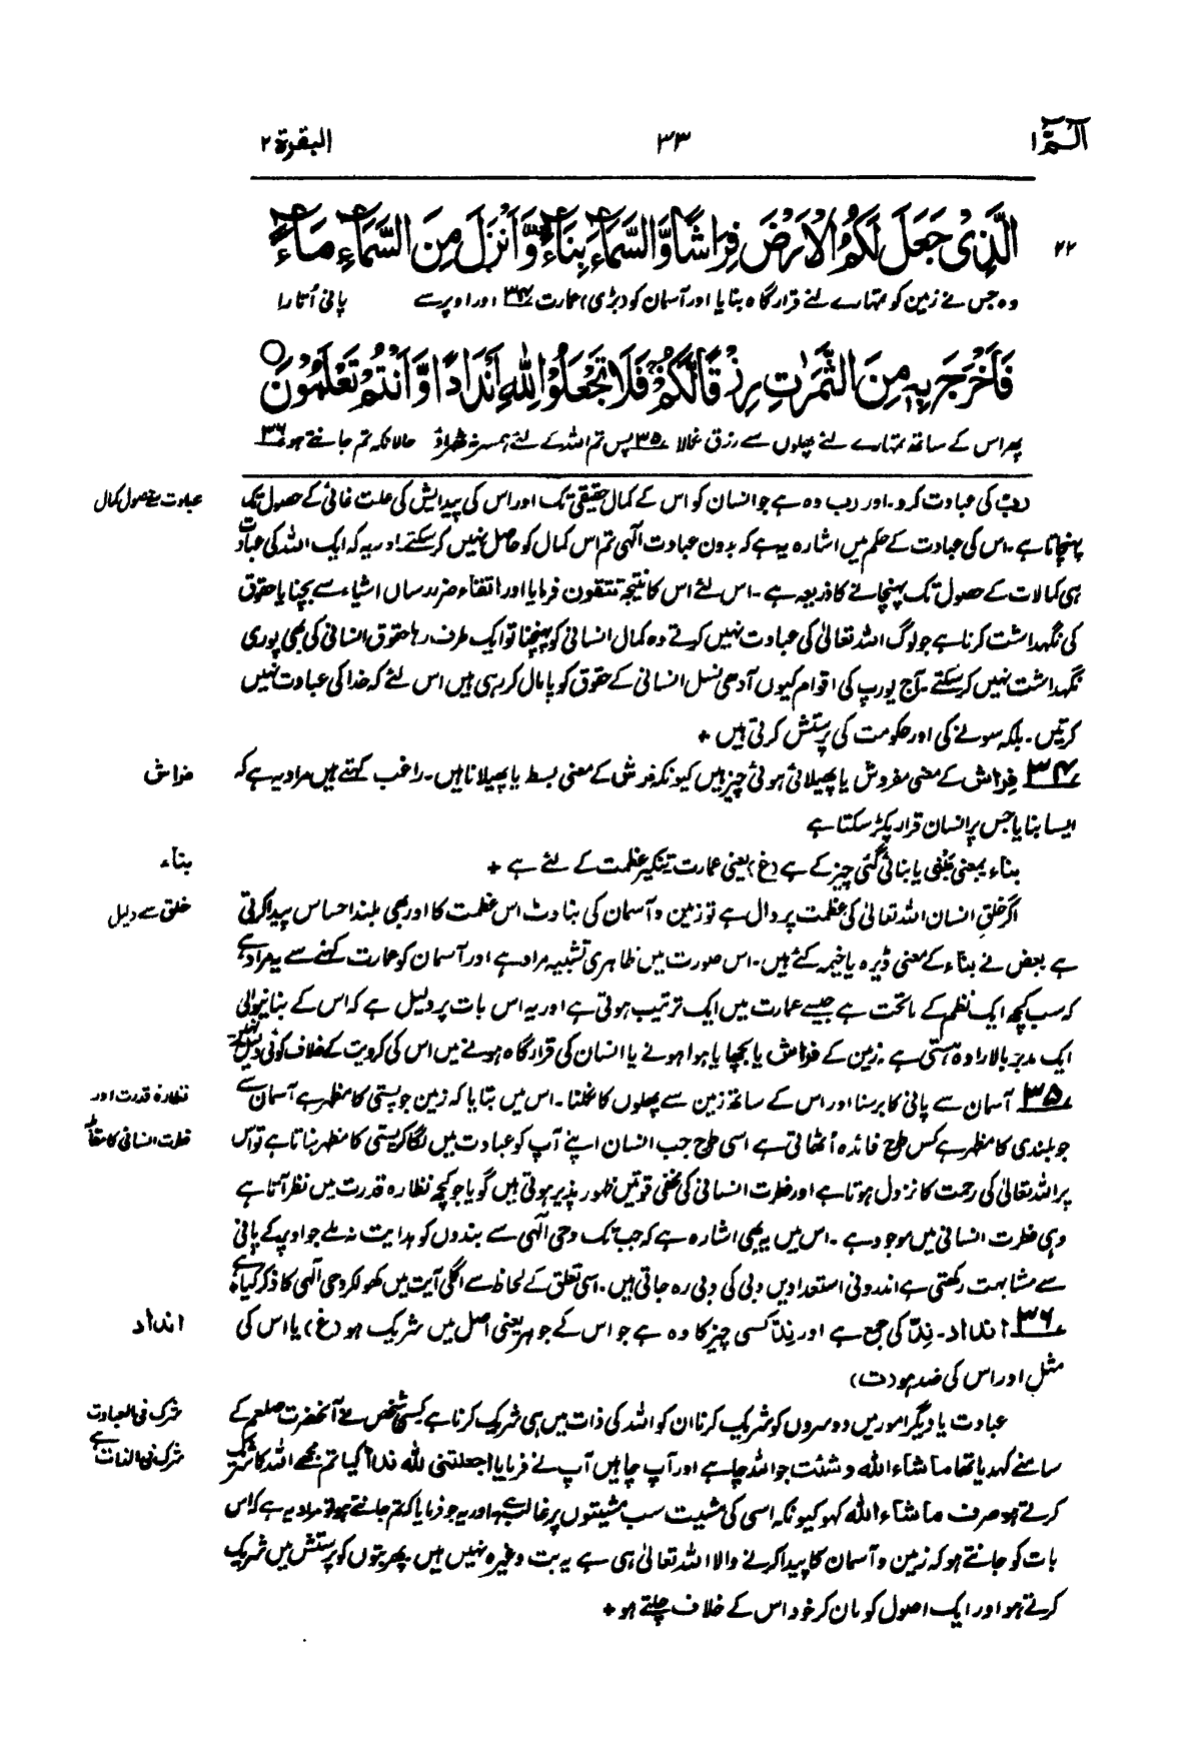 الٓمّٓ ۱ ۳۳ البقرۃ ۲
۲۲ الَّذِیْ جَعَلَ لَكُمُ الْاَرْضَ فِرَاشًا وَّالسَّمَآءَ بِنَآءً وَّاَنْزَلَ مِنَ السَّمَآءِ مَآءً
وہ جس نے زمین کو تمہارے لئے قرار گاہ بنایا اور آسمان کو (بڑی) عمارت ۳۴ اور اوپر سے پانی اُتارا
فَاَخْرَجَ بِهٖ مِنَ الثَّمَرٰتِ رِزْقًا لَّكُمْ فَلَا تَجْعَلُوْا لِلّٰهِ اَنْدَادًا وَّاَنْتُمْ تَعْلَمُوْنَ
پھر اس کے ساتھ تمہارے لئے پھلوں سے رزق نکالا ۳۵ پس تم اللہ کے لئے ہمسر نہ ٹھہراؤ حالانکہ تم جانتے ہو ۳۶
ربّ کی عبادت کرو۔ اور رب وہ ہے جو انسان کو اس کے کمال حقیقی تک اور اس کی پیدایش کی علت غائی کے حصول تک
عبادت سے حصول کمال
پہنچاتا ہے۔ اس کی عبادت کے حکم میں اشارہ یہ ہے کہ بدون عبادت الٰہی تم اس کمال کو حاصل نہیں کرسکتے اور یہ کہ ایک اللہ کی عبادت
ہی کمالات کے حصول تک پہنچانے کا ذریعہ ہے۔ اس لئے اس کا نتیجہ تتقون فرمایا اور اتقاء ضرر رساں اشیاء سے بچنا یا حقوق
کی نگہداشت کرنا ہے جو لوگ اللہ تعالیٰ کی عبادت نہیں کرتے وہ کمال انسانی کو پہنچنا تو ایک طرف رہا حقوق انسانی کی بھی پوری
نگہداشت نہیں کرسکتے۔ آج یورپ کی اقوام کیوں آدھی نسل انسانی کے حقوق کو پامال کر رہی ہیں اس لئے کہ خدا کی عبادت نہیں
کرتیں۔ بلکہ سونے کی اور حکومت کی پرستش کرتی ہیں +
۳۴ فِراش کے معنی مفروش یا پھیلائی ہوئی چیز ہیں کیونکہ فرش کے معنی بسط یا پھیلانا ہیں۔ راغب کہتے ہیں مراد یہ ہے کہ
فراش
ایسا بنایا جس پر انسان قرار پکڑ سکتا ہے
بناء بمعنی مَبْنِی یا بنائی گئی چیز کے ہے (غ) یعنی عمارت تنکیر عظمت کے لئے ہے +
بناء
اگر خلقِ انسان اللہ تعالیٰ کی عظمت پر دال ہے تو زمین و آسمان کی بناوٹ اس عظمت کا اور بھی بلند احساس پیدا کرتی
خلق سے دلیل
ہے بعض نے بناء کے معنی ڈیرہ یا خیمہ کئے ہیں۔ اس صورت میں ظاہری تشبیہ مراد ہے اور آسمان کو عمارت کہنے سے یہ مراد ہے
کہ سب کچھ ایک نظم کے ماتحت ہے جیسے عمارت میں ایک ترتیب ہوتی ہے اور یہ اس بات پر دلیل ہے کہ اس کے بنانیوالی
ایک مدبر بالارادہ ہستی ہے۔ زمین کے فراش یا بچھایا ہوا ہونے یا انسان کی قرار گاہ ہونے میں اس کی کرویت کے خلاف کوئی دلیل نہیں
۳۵ آسمان سے پانی کا برسنا اور اس کے ساتھ زمین سے پھلوں کا نکلنا۔ اس میں بتایا کہ زمین جو پستی کا مظہر ہے آسمان سے
نظارۂ قدرت اور
جو بلندی کا مظہر ہے کس طرح فائدہ اُٹھاتی ہے اسی طرح جب انسان اپنے آپ کو عبادت میں لگا کر پستی کا مظہر بناتا ہے تو اس
فطرت انسانی کا مقابلہ
پر اللہ تعالیٰ کی رحمت کا نزول ہوتا ہے اور فطرت انسانی کی مخفی قوتیں ظہور پذیر ہوتی ہیں گویا جو کچھ نظارہ قدرت میں نظر آتا ہے
وہی فطرت انسانی میں موجود ہے۔ اس میں یہ بھی اشارہ ہے کہ جب تک وحی الٰہی سے بندوں کو ہدایت نہ ملے جو اوپر کے پانی
سے مشابہت رکھتی ہے اندرونی استعدادیں دبی کی دبی رہ جاتی ہیں۔ اسی تعلق کے لحاظ سے اگلی آیت میں کھول کر وحی الٰہی کا ذکر کیا ہے
۳۶ انداد۔ نِدّ کی جمع ہے اور نِدّ کسی چیز کا وہ ہے جو اس کے جوہر یعنی اصل میں شریک ہو (غ) یا اس کی
انداد
مثل اور اس کی ضد ہو (ت)
عبادت یا دیگر امور میں دوسروں کو شریک کرنا ان کو اللہ کی ذات میں ہی شریک کرنا ہے کسی شخص نے آنحضرت صلعم کے
شرک فی العبادت
سامنے کہہ دیا تھا ما شاء اللہ و شئت جو اللہ چاہے اور آپ چاہیں آپ نے فرمایا اجعلتنی للہ ندًّا کیا تم مجھے اللہ کا شریک
شرک فی الذات ہے
کرتے ہو صرف ما شاء اللہ کہو کیونکہ اسی کی مشیت سب مشیتوں پر غالب ہے اور یہ جو فرمایا کہ تم جانتے ہو تو مراد یہ ہے کہ اس
بات کو جانتے ہو کہ زمین و آسمان کا پیدا کرنے والا اللہ تعالیٰ ہی ہے یہ بت وغیرہ نہیں ہیں۔ پھر بتوں کو پرستش میں شریک
کرتے ہو اور ایک اصول کو مان کر خود اس کے خلاف چلتے ہو +